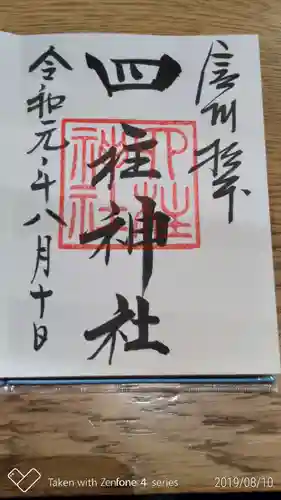 信州松本
四柱神社
四柱神社
令和元年八月十日
Taken with Zenfone 4 series
2019/08/10